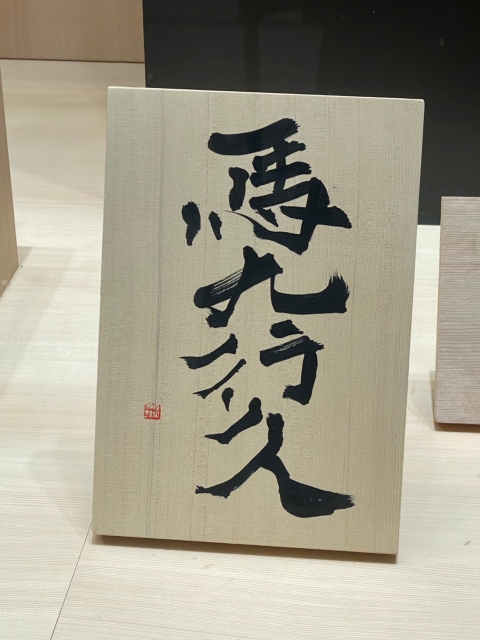 馬九行久